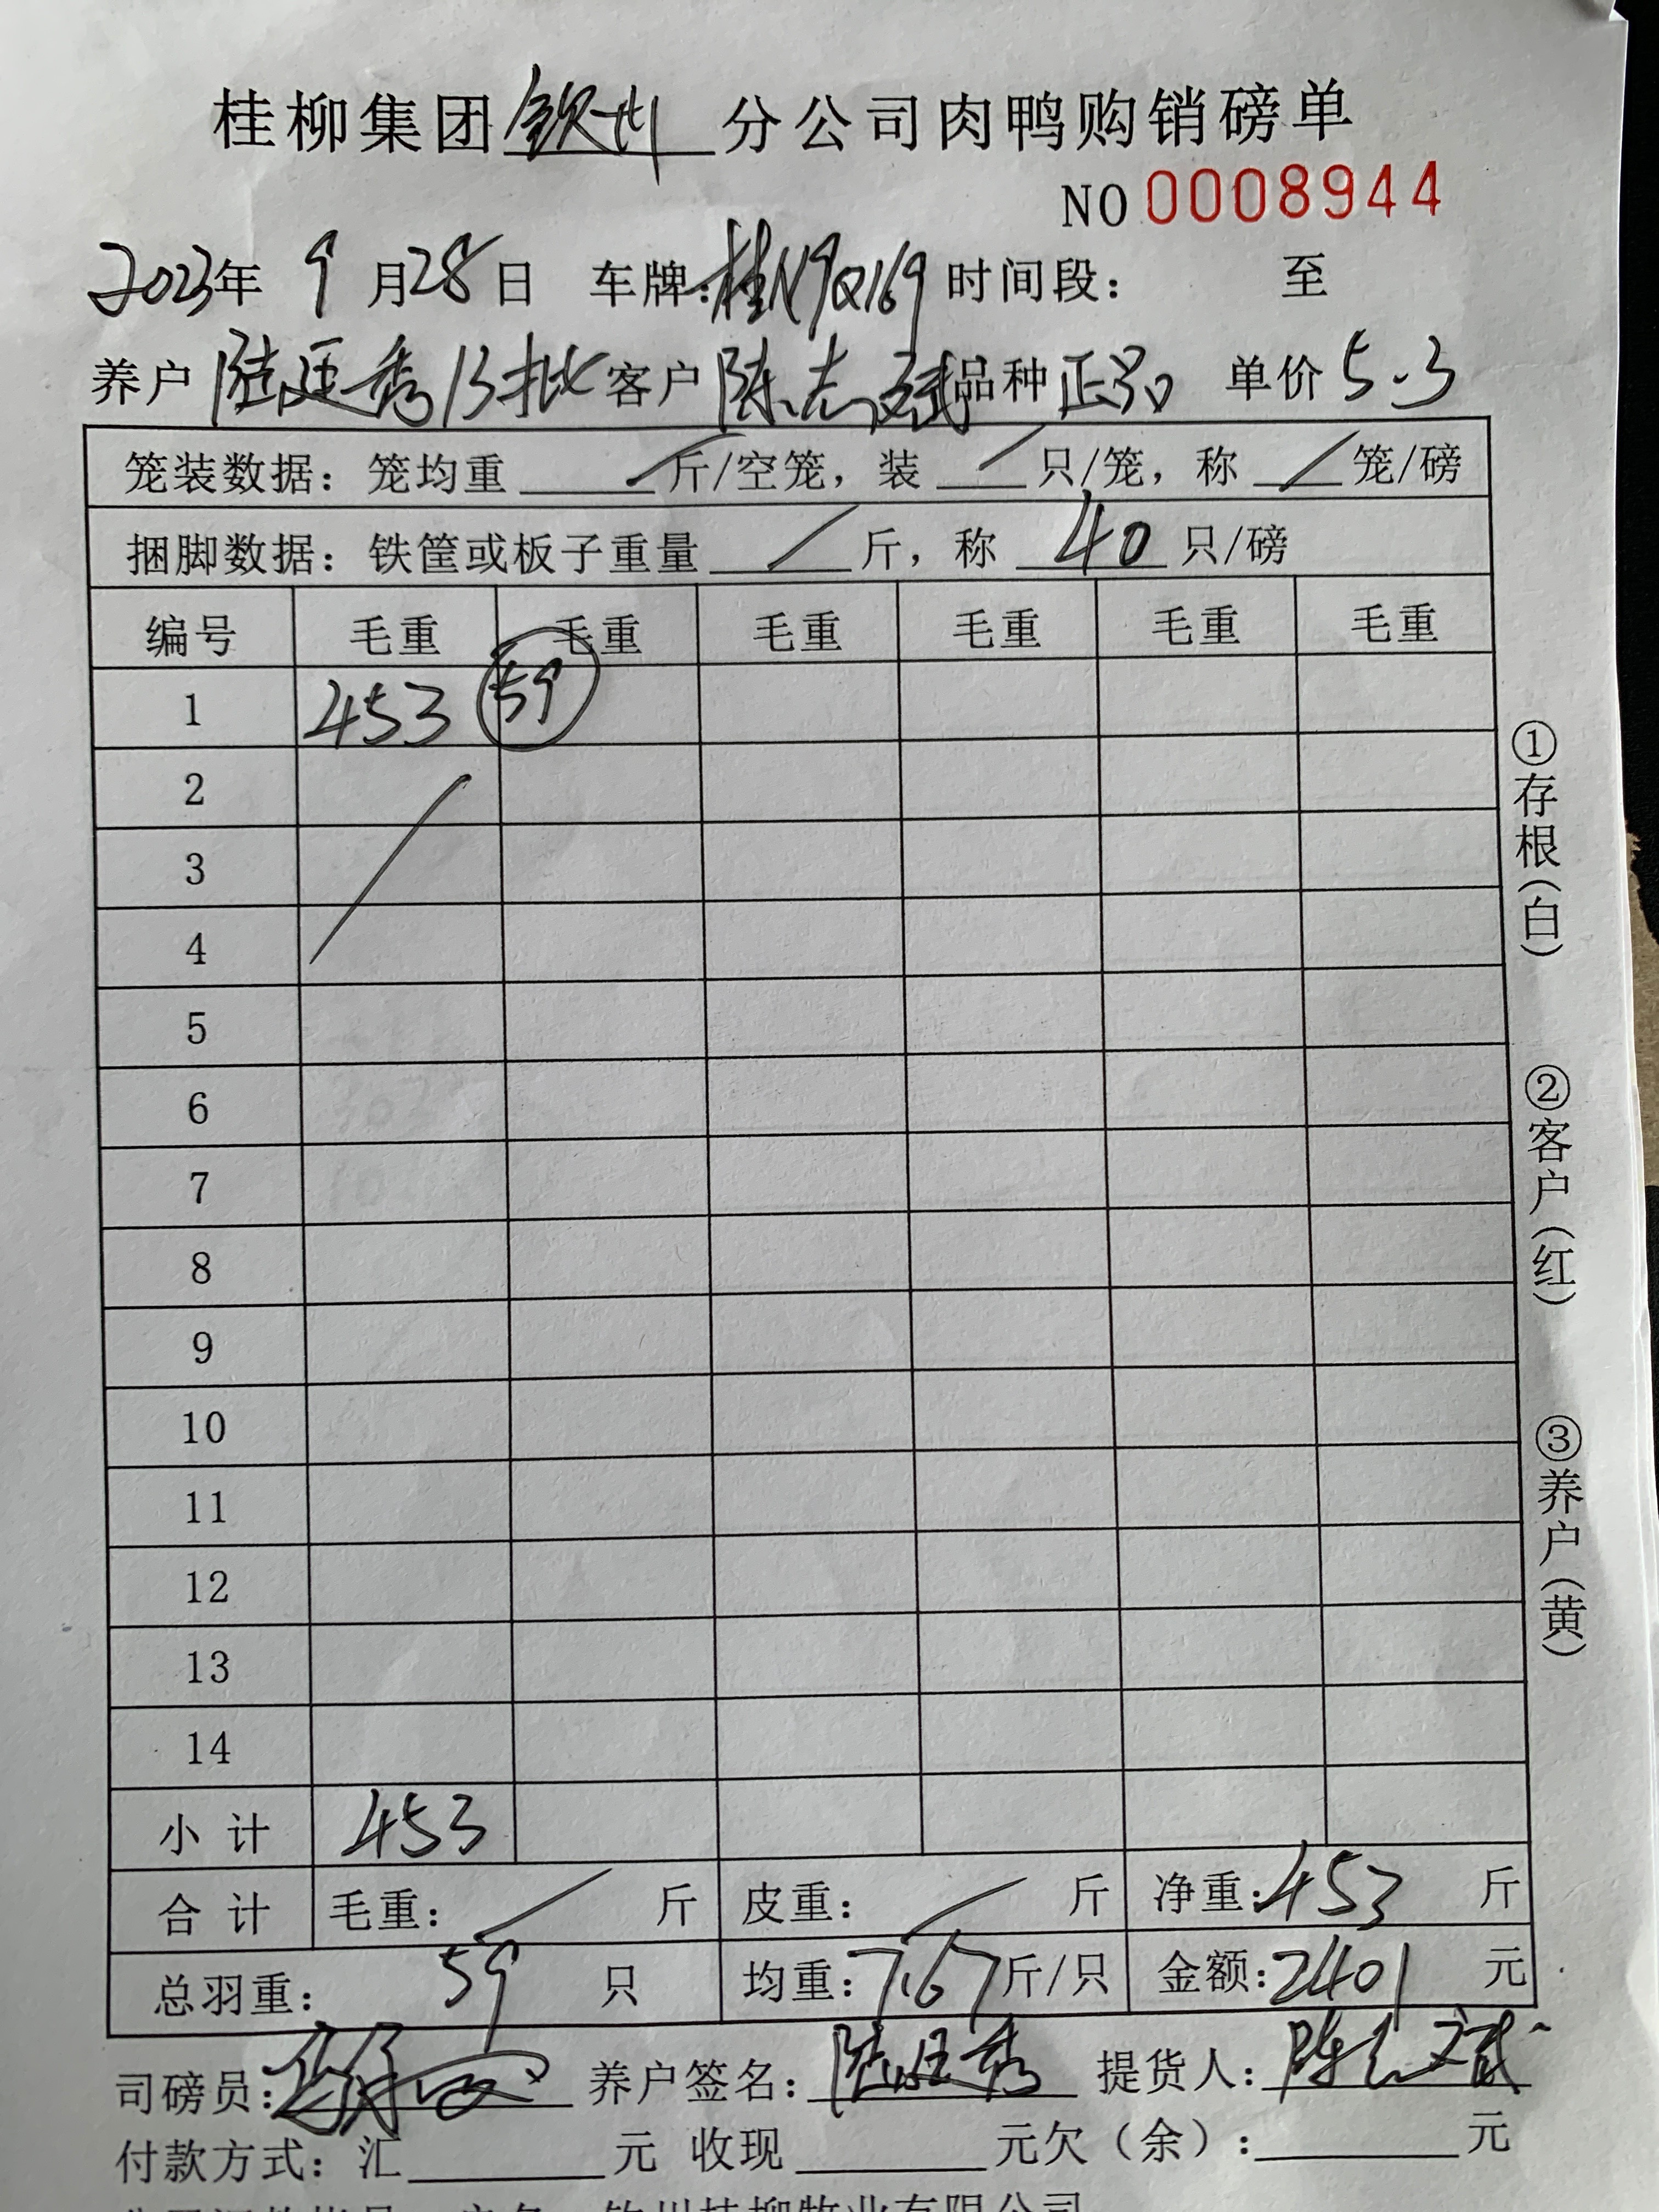 桂柳集团钦州分公司肉鸭购销磅单
NO 0008944
2023年 9月28日 车牌:桂N9Q169 时间段: 至
养户 陆廷秀13批 客户 陈志斌 品种 正品 单价 5.3
笼装数据: 笼均重 / 斤/空笼, 装 / 只/笼, 称 / 笼/磅
捆脚数据: 铁筐或板子重量 / 斤, 称 40 只/磅
编号 毛重 毛重 毛重 毛重 毛重 毛重
1 453 59
2
3
4
5
6
7
8
9
10
11
12
13
14
小计 453
合计 毛重: / 斤 皮重: / 斤 净重:453 斤
总羽重: 59 只 均重:7.67斤/只 金额:2401 元
司磅员: 养户签名:陆廷秀 提货人:陈志斌
付款方式: 汇 元 收现 元欠(余): 元
钦州桂柳牧业有限公司
①存根(白)
②客户(红)
③养户(黄)